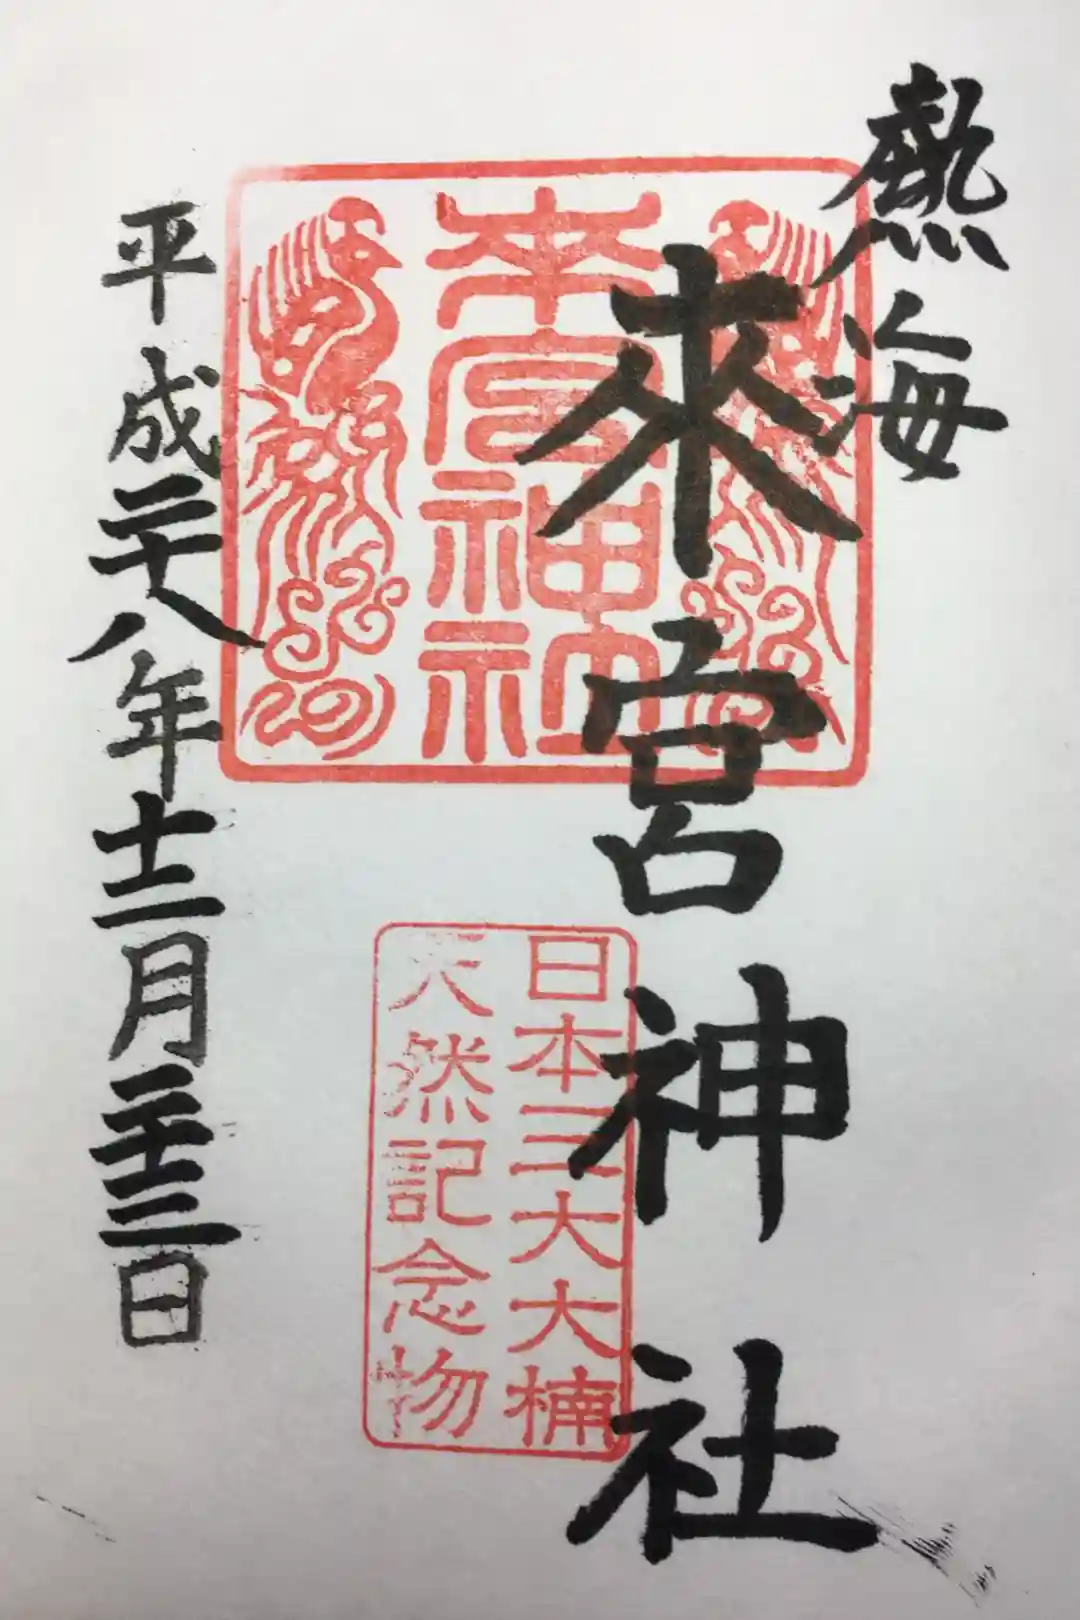 熱海
來宮神社
來宮神社
日本三大大楠
天然記念物
平成二十八年十二月二十三日